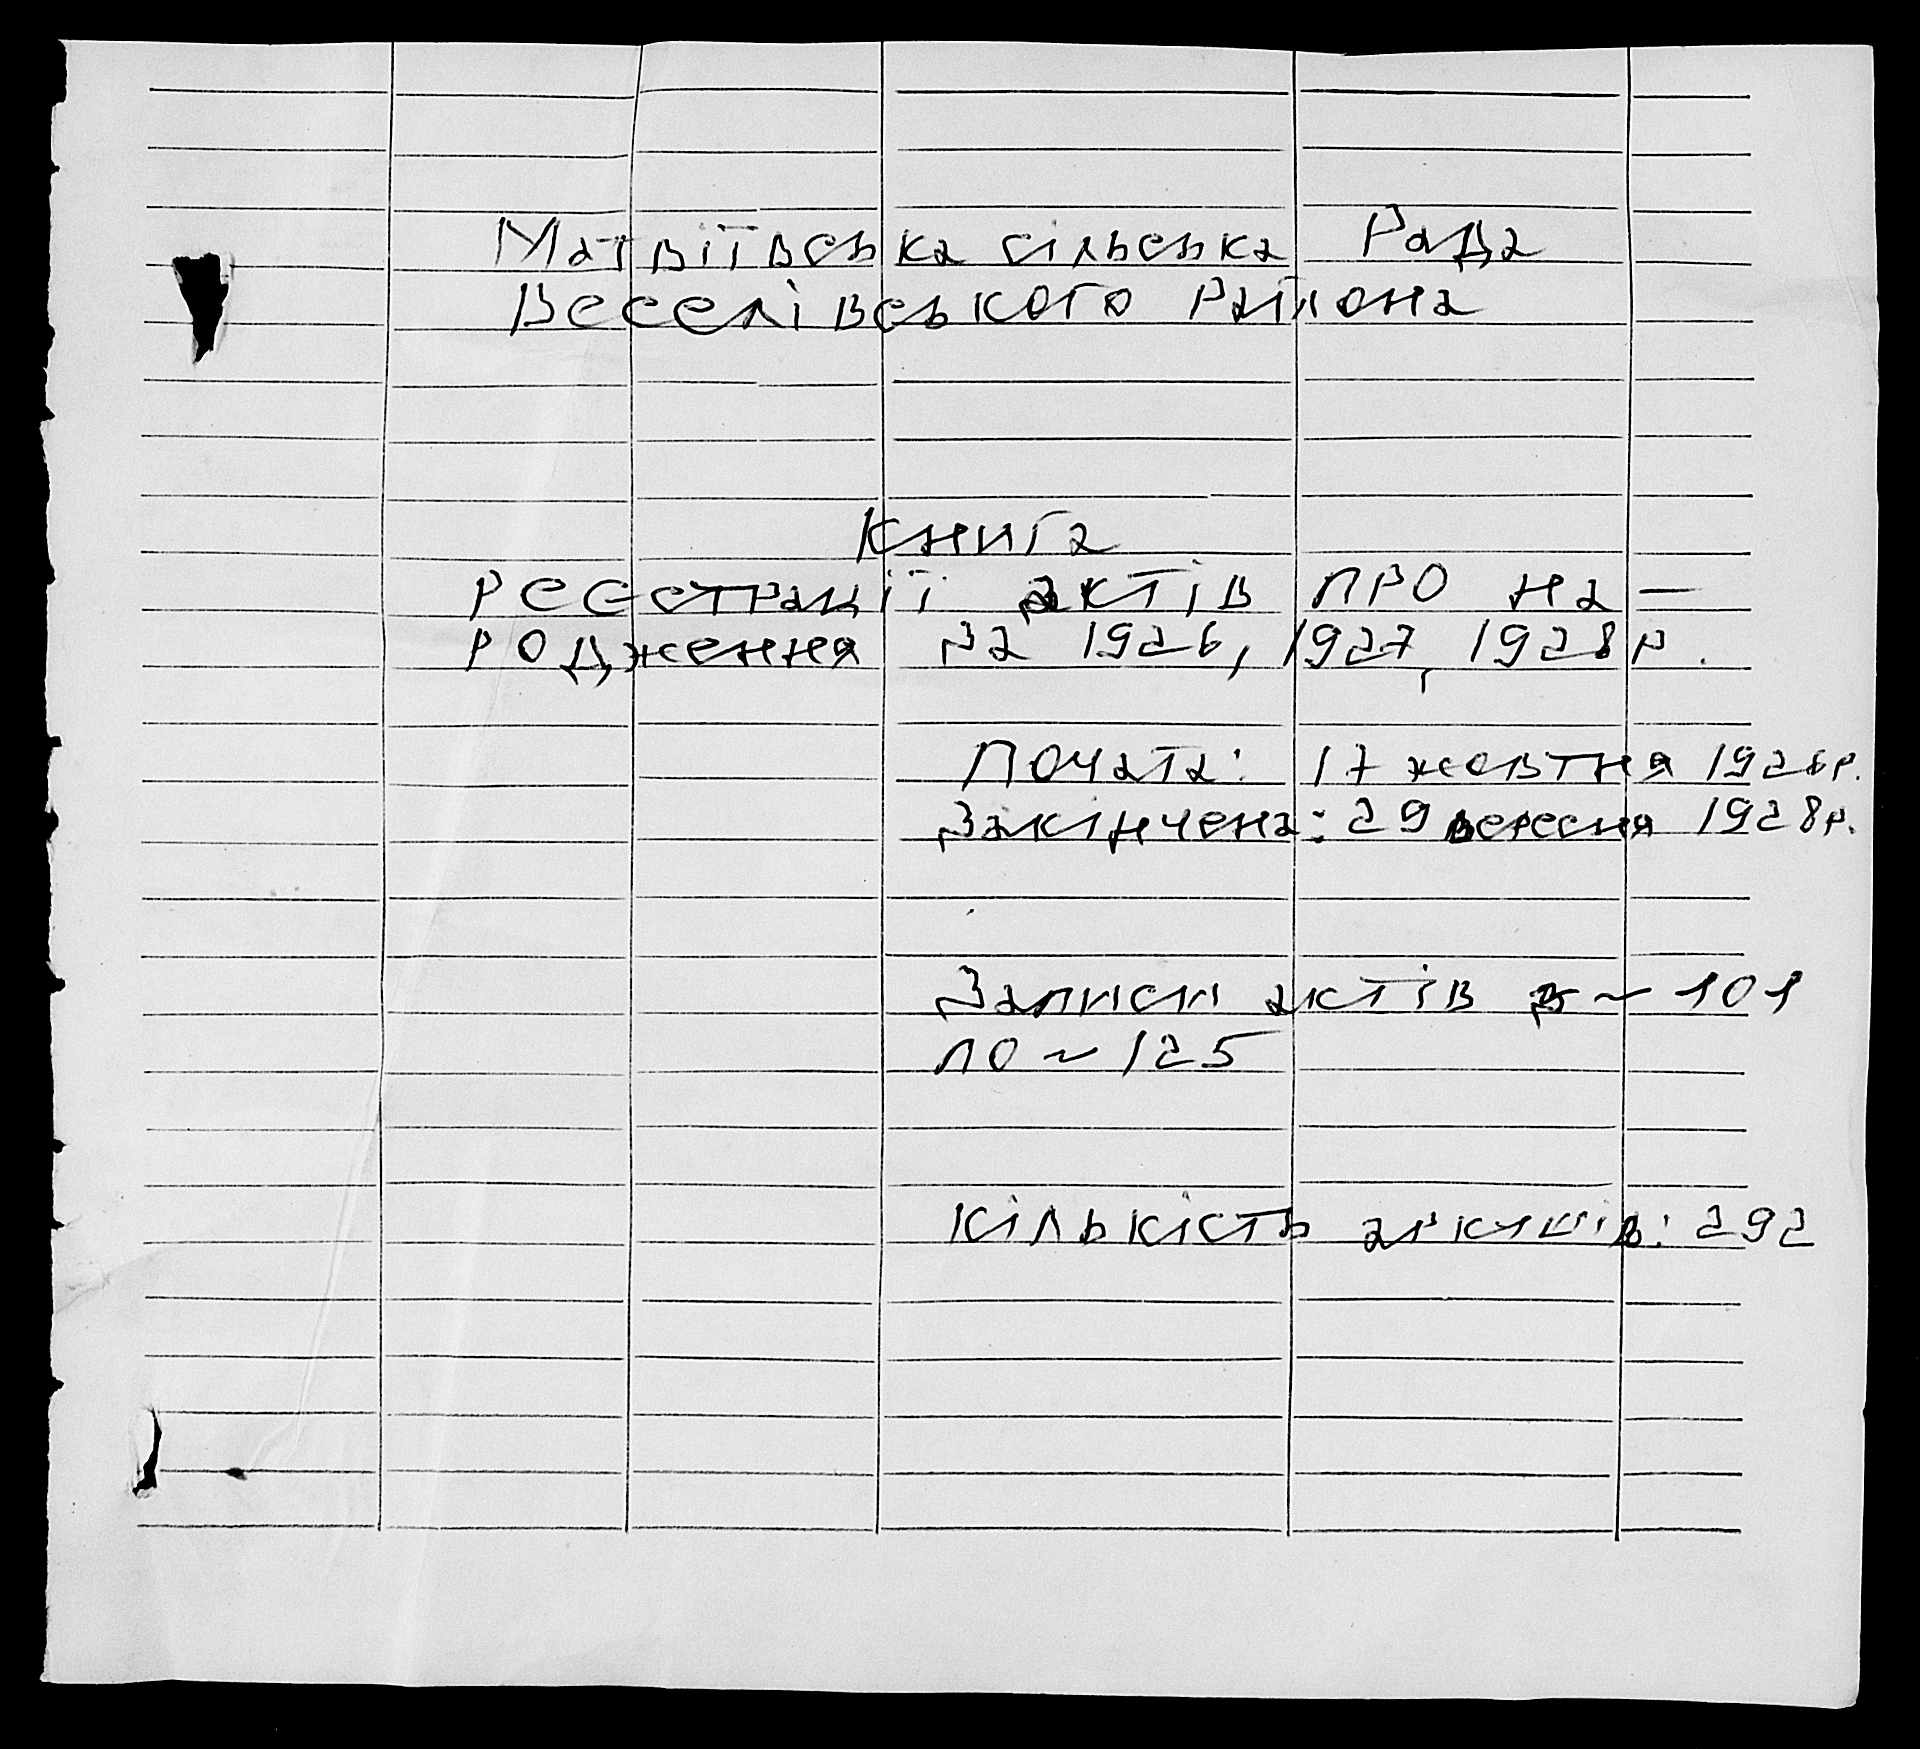 Матвіївська сільська Рада
Веселівського Района
Книга
реєстрації актів про на-
родження за 1926, 1927, 1928 р.
Почата: 17 жовтня 1926 р.
Закінчена: 29 вересня 1928 р.
Записи актів з ~ 101
по ~ 125
кількість аркушів: 292